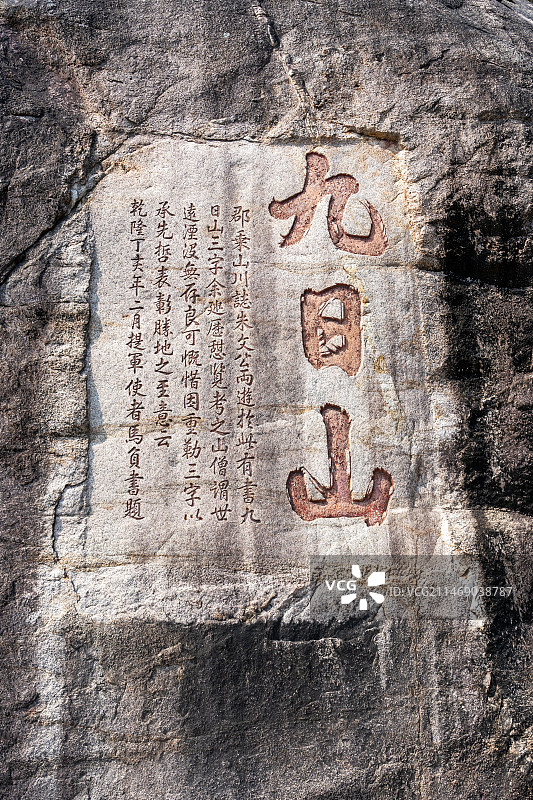 九日山
郡乘山川誌朱文公两遊於此有書九
日山三字余廵歷憇覽考之山僧謂世
遠湮没無存良可慨惜因重勒三字以
承先哲表彰勝地之至意云
乾隆丁亥年二月提軍使者馬負書題
VCG
ID:VCG211469038787